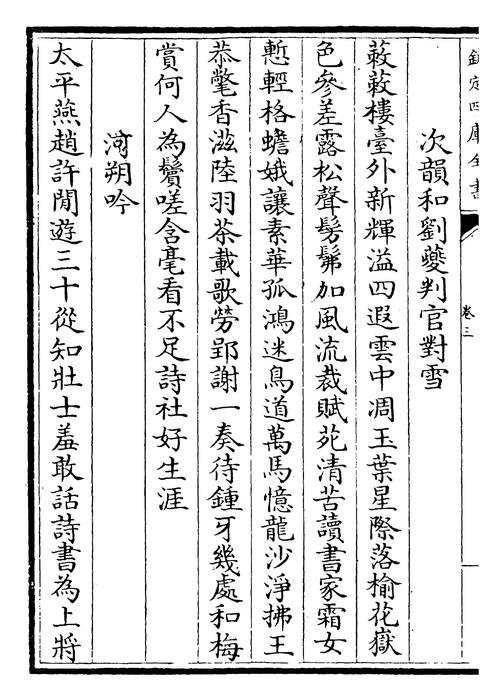 欽定四庫全書
卷三
次韻和劉夔判官對雪
蔌蔌樓臺外新輝溢四遐雲中凋玉葉星際落榆花嶽
色參差露松聲髣髴加風流裁賦苑清苦讀書家霜女
慙輕格蟾娥讓素華孤鴻迷鳥道萬馬憶龍沙淨拂王
恭氅香滋陸羽茶載歌勞郢謝一奏待鍾牙幾處和梅
賞何人為鬢嗟含毫看不足詩社好生涯
河朔吟
太平燕趙許閒遊三十從知壯士羞敢話詩書為上將